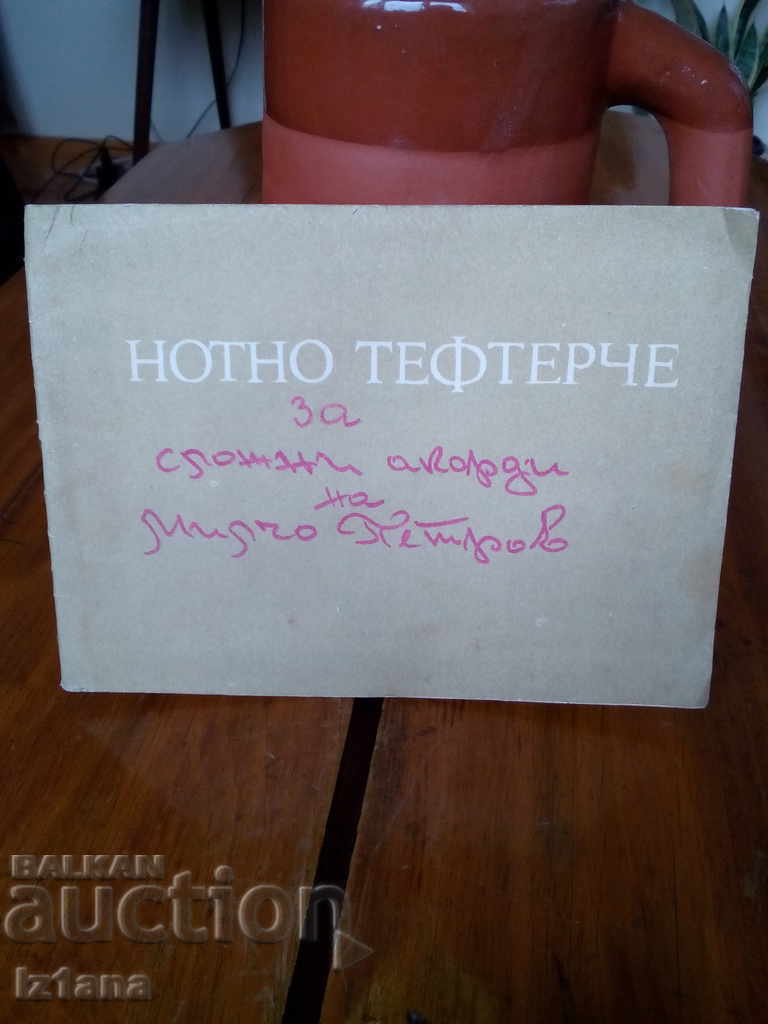 НОТНО ТЕФТЕРЧЕ
за
сложни акорди
на
Милчо Петров
BALKAN
auction
Iz1ana